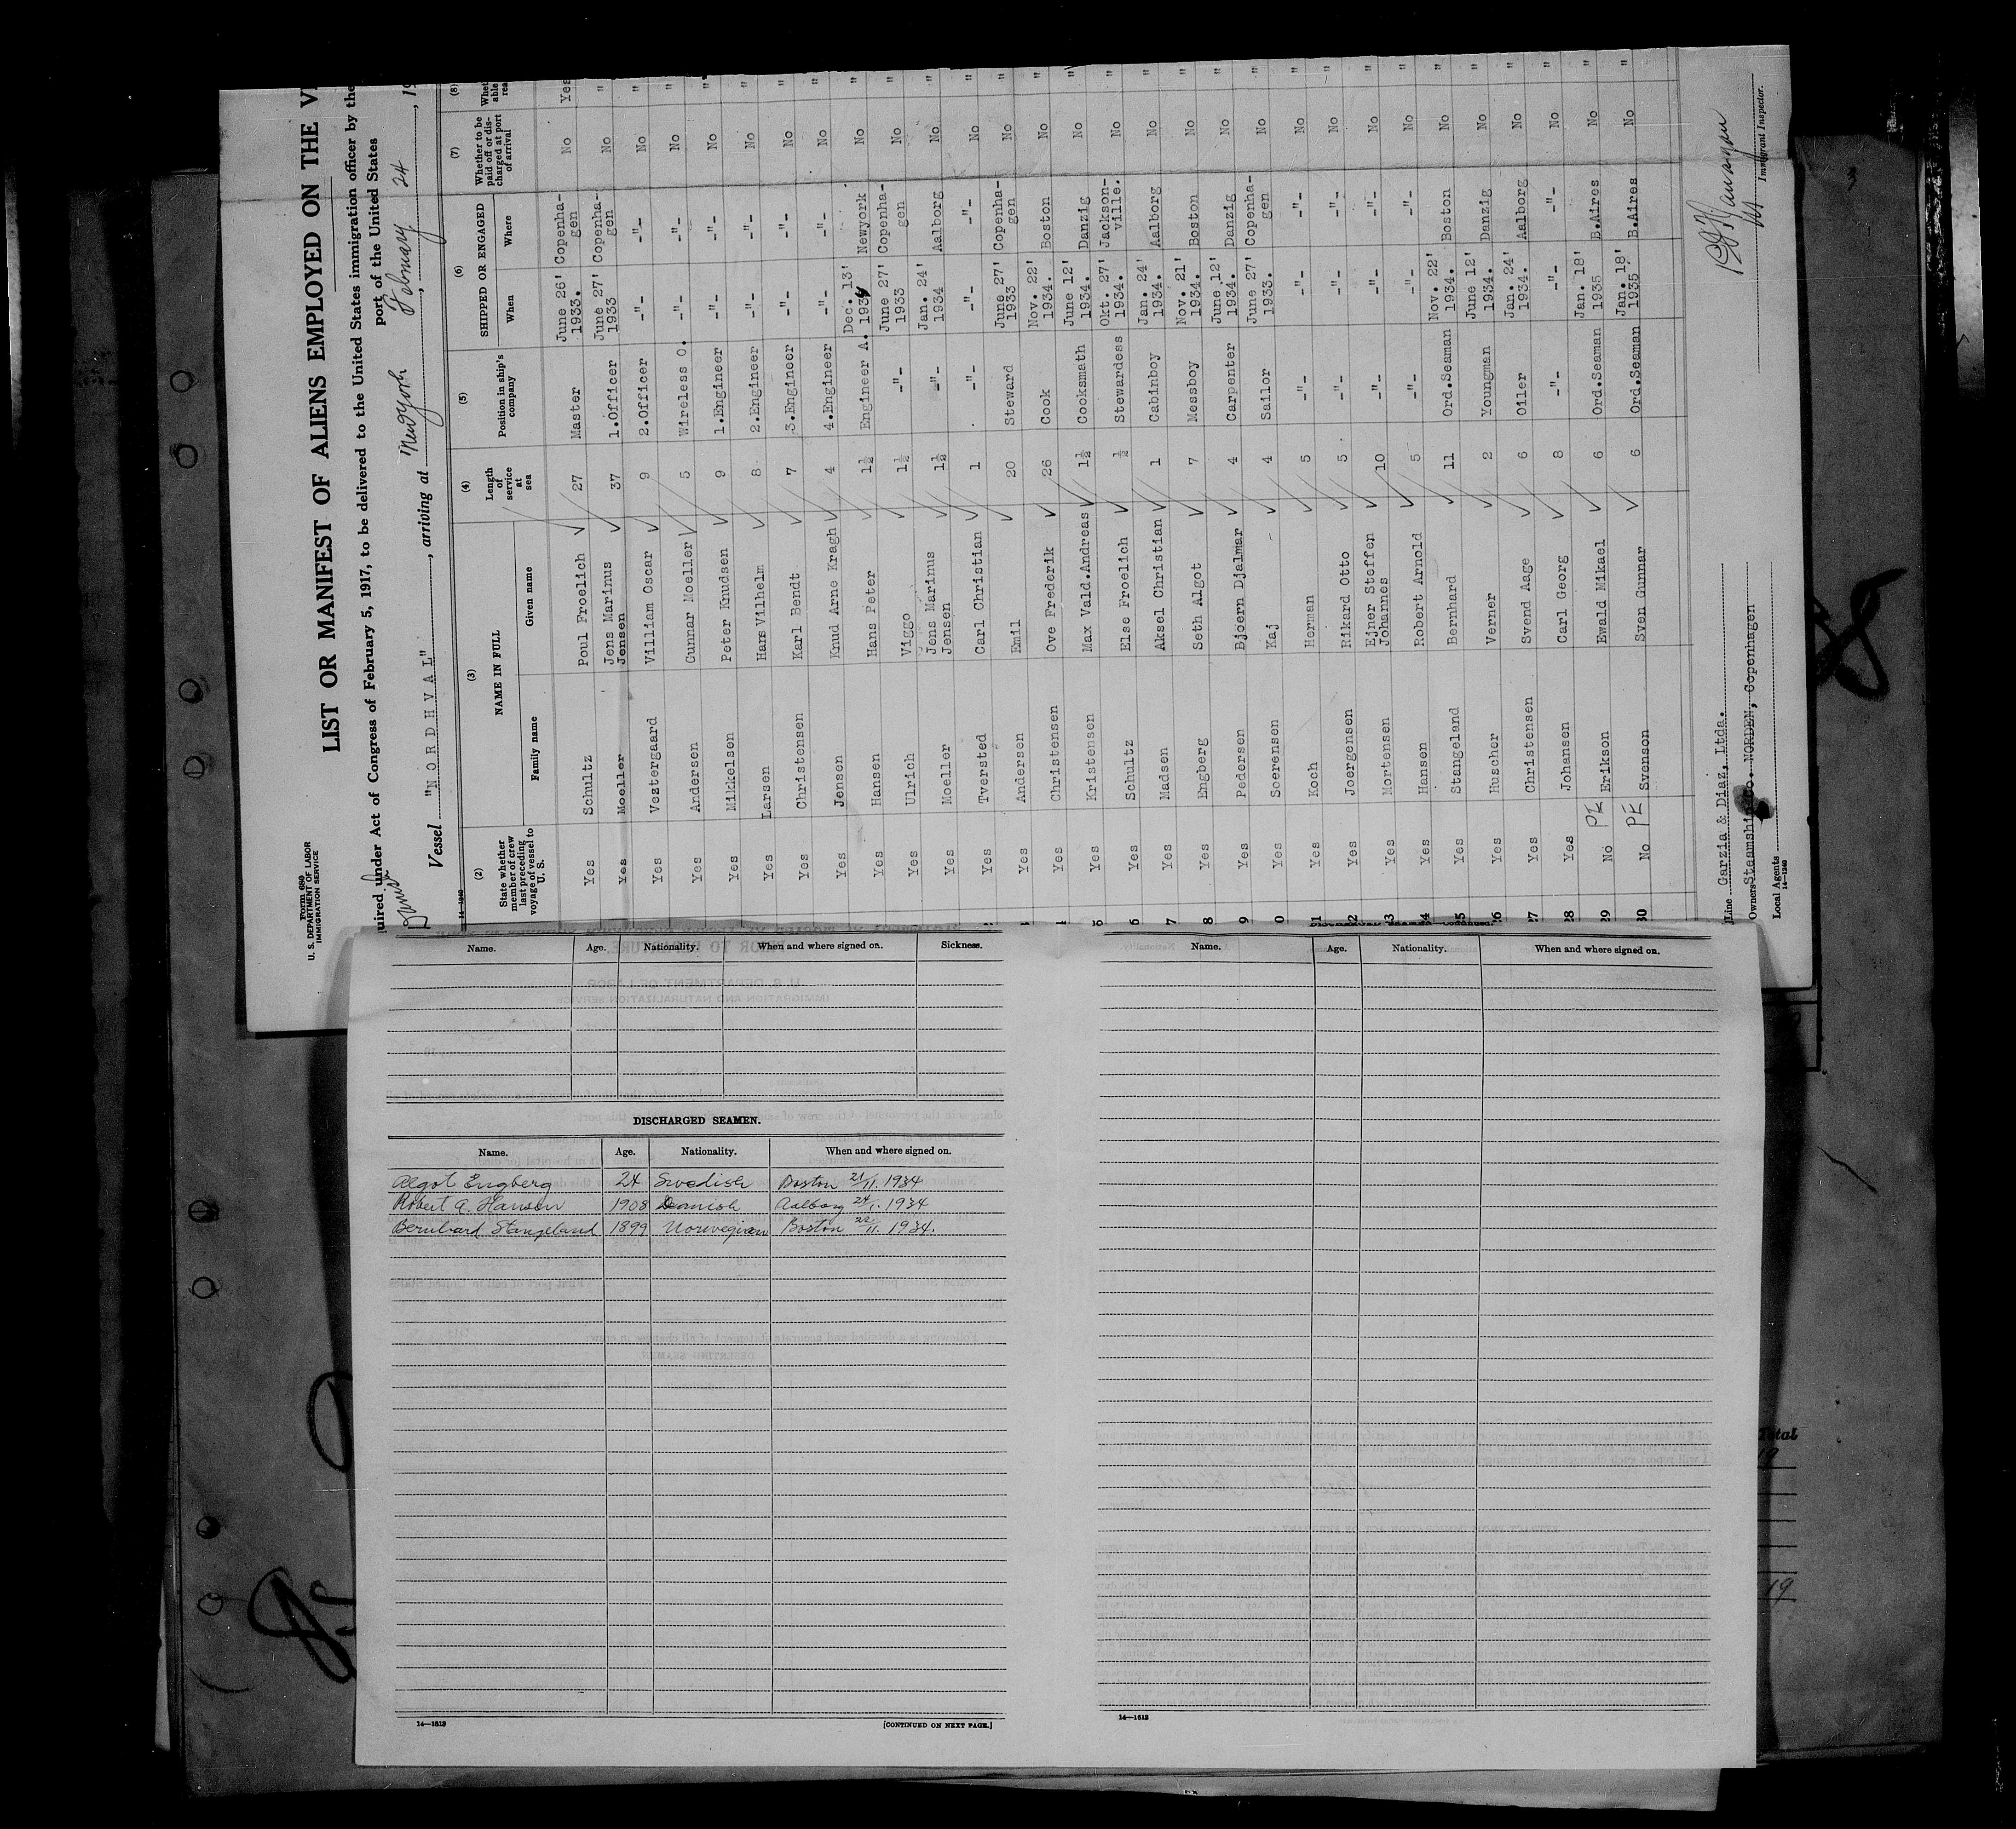 Form 680
U. S. DEPARTMENT OF LABOR
IMMIGRATION SERVICE
LIST OR MANIFEST OF ALIENS EMPLOYED ON THE
quired under Act of Congress of February 5, 1917, to be delivered to the United States immigration officer by the
port of the United States
Danish
Vessel "NORDHVAL", arriving at Newyork, February 24, 19
14-1240
(2) (3) (4) (5) (6) (7) (8)
State whether member of crew last preceding voyage of vessel to U. S. NAME IN FULL Length of service at sea Position in ship's company SHIPPED OR ENGAGED Whether to be paid off or discharged at port of arrival
Family name Given name When Where
Yes Schultz Poul Froelich 27 Master June 26' 1933. Copenhagen No Yes
Yes Moeller Jens Marinus Jensen 37 1.Officer June 27' 1933 Copenhagen No "
Yes Vestergaard Villiam Oscar 9 2.Officer -"- -"- No "
Yes Andersen Gunnar Moeller 5 Wireless O. -"- -"- No "
Yes Mikkelsen Peter Knudsen 9 1.Engineer -"- -"- No "
Yes Larsen Hans Vilhelm 8 2.Engineer -"- -"- No "
Yes Christensen Karl Bendt 7 3.Engineer -"- -"- No "
Yes Jensen Knud Arne Kragh 4 4.Engineer -"- -"- No "
Yes Hansen Hans Peter 1½ Engineer A. Dec. 13' 1934 Newyork No "
Yes Ulrich Viggo 1½ -"- June 27' 1933 Copenhagen No "
Yes Moeller Jens Marinus Jensen 1½ -"- Jan. 24' 1934 Aalborg No "
Yes Tversted Carl Christian 1 -"- -"- -"- No "
Yes Andersen Emil 20 Steward June 27' 1933 Copenhagen No "
Yes Christensen Ove Frederik 26 Cook Nov. 22' 1934. Boston No "
Yes Kristensen Max Vald.Andreas 1½ Cooksmath June 12' 1934. Danzig No "
6 Yes Schultz Else Froelich ½ Stewardess Okt. 27' 1934. Jacksonville. No "
7 Yes Madsen Aksel Christian 1 Cabinboy Jan. 24' 1934. Aalborg No "
8 Yes Engberg Seth Algot 7 Messboy Nov. 21' 1934. Boston No "
9 Yes Pedersen Bjoern Djalmar 4 Carpenter June 12' 1934. Danzig No "
0 Yes Soerensen Kaj 4 Sailor June 27' 1933. Copenhagen No "
21 Yes Koch Herman 5 -"- -"- -"- No "
22 Yes Joergensen Rikard Otto 5 -"- -"- -"- No "
23 Yes Mortensen Ejner Steffen Johannes 10 -"- -"- -"- No "
24 Yes Hansen Robert Arnold 5 -"- -"- -"- No "
25 Yes Stangeland Bernhard 11 Ord.Seaman Nov. 22' 1934. Boston No "
26 Yes Huscher Verner 2 Youngman June 12' 1934. Danzig No "
27 Yes Christensen Svend Aage 6 Oiler Jan. 24' 1934. Aalborg No "
28 Yes Johansen Carl Georg 8 -"- -"- -"- No "
29 No PE Erikson Ewald Mikael 6 Ord.Seaman Jan. 18' 1935 B.Aires No "
30 No PE Svenson Sven Gunnar 6 Ord.Seaman Jan. 18' 1935. B.Aires No "
Line Garzia & Diaz, Ltda.
Owners Steamship Co. NORDEN, Copenhagen
Local Agents
14-1240
Immigrant Inspector.
Name. Age. Nationality. When and where signed on. Sickness.
DISCHARGED SEAMEN.
Name. Age. Nationality. When and where signed on.
Algot Engberg 24 Swedish Boston 21/11. 1934
Robert A. Hansen 1908 Danish Aalborg 24/1. 1934
Bernhard Stangeland 1899 Norwegian Boston 22/11. 1934.
14—1613
[CONTINUED ON NEXT PAGE.]
Name. Age. Nationality. When and where signed on.
14—1613
Total
19
19